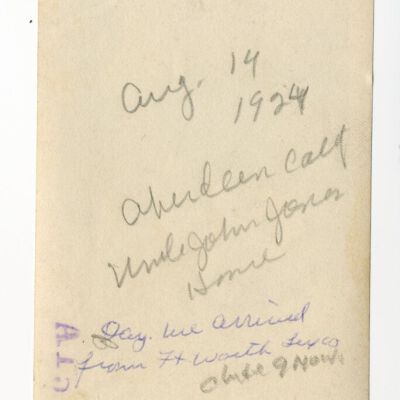 Aug. 14
1924
Aberdeen Calif
Uncle John Jones
Home
Day. we arrived
from Ft Worth Texas
9 Now.